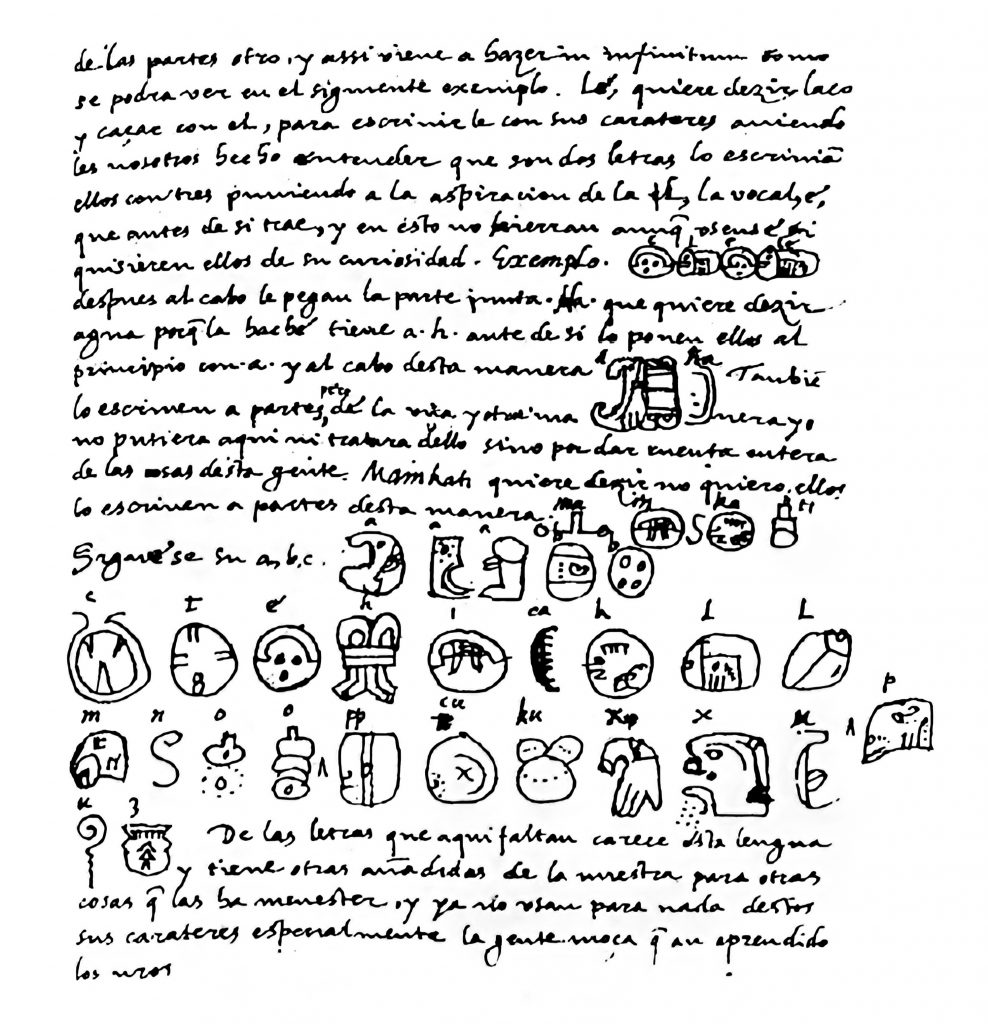 de las partes otro, y assi viene a hazer in infinitum como
se podra ver en el siguiente exemplo. Lé, quiere dezir laço
y caçar con el, para escrivirle con sus carateres aviendo
les nosotros hecho entender que son dos letras lo escrivian
ellos con tres puniendo a la aspiracion de la l, la vocal, é,
que antes de si trae, y en esto no hierran aunq̃ usense si
quisieren ellos de su curiosidad. Exemplo. e L e Lé
despues al cabo le pegan la parte junta. Ha. que quiere dezir
agua porq̃ la hache tiene a. h. ante de si lo ponen ellos al
principio con. a. y al cabo desta manera a ha Tambiē
lo escriven a partes, pero de la una y otra ma nera yo
no pusiera aqui ni tratara dello sino por dar cuenta entera
de las cosas desta gente. Mainkati quiere dezir no quiero, ellos
lo escriven a partes desta manera. ma i n ka ti
Siguese su a, b, c. a a a b b
c t é h i ca k l L
m n o o pp cu ku x x u p
u z De las letras que aqui faltan carece esta lengua
y tiene otras añadidas de la nuestra para otras
cosas q̃ las ha menester, y ya no usan para nada destos
sus carateres especialmente la gente moça q̃ an aprendido
los nros